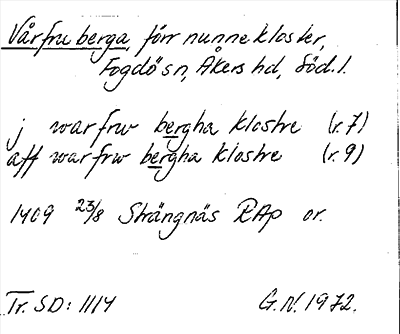 Vårfruberga, förr nunnekloster,
Fogdö sn, Åkers hd, Söd.l.
j warfrw bergha klostre (r. 7)
aff warfrw bergha klostre (r. 9)
1409 23/8 Strängnäs RAp or.
Tr. SD: 1114
G.N. 1972.